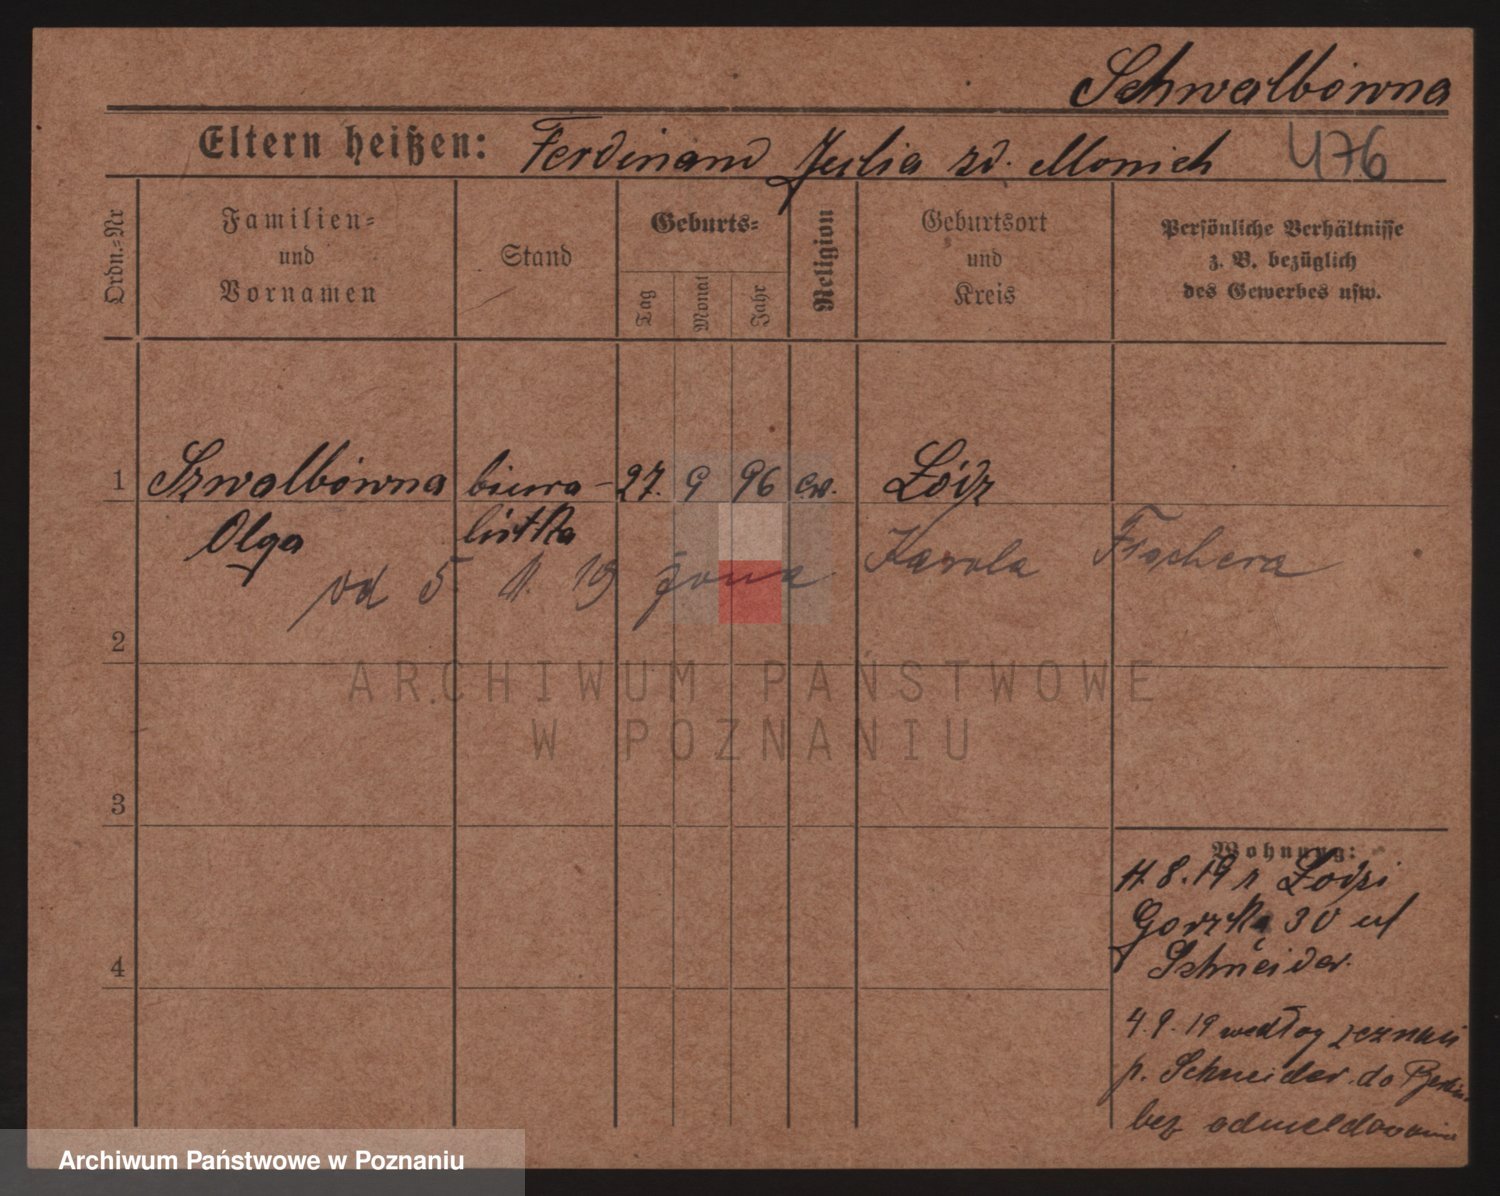 Schwalbówna
Eltern heißen: Ferdinand Julia zd. Monich 476
Ordn.=Nr
Familien=
und
Vornamen
Stand
Geburts=
Tag
Monat
Jahr
Religion
Geburtsort
und
Kreis
Persönliche Verhältnisse
z. B. bezüglich
des Gewerbes usw.
1 Szwalbówna biura- 27. 9 96 ew. Łódź
Olga listka
od 5. 11. 19 żona Karola Fischera
2
3
4
Wohnung:
11.8.19 z Łodzi
30 ul
Schneider.
4.9.19 według zeznań
p. Schneider. do Berlin.
bez odmeldowania
ARCHIWUM PAŃSTWOWE
W POZNANIU
Archiwum Państwowe w Poznaniu